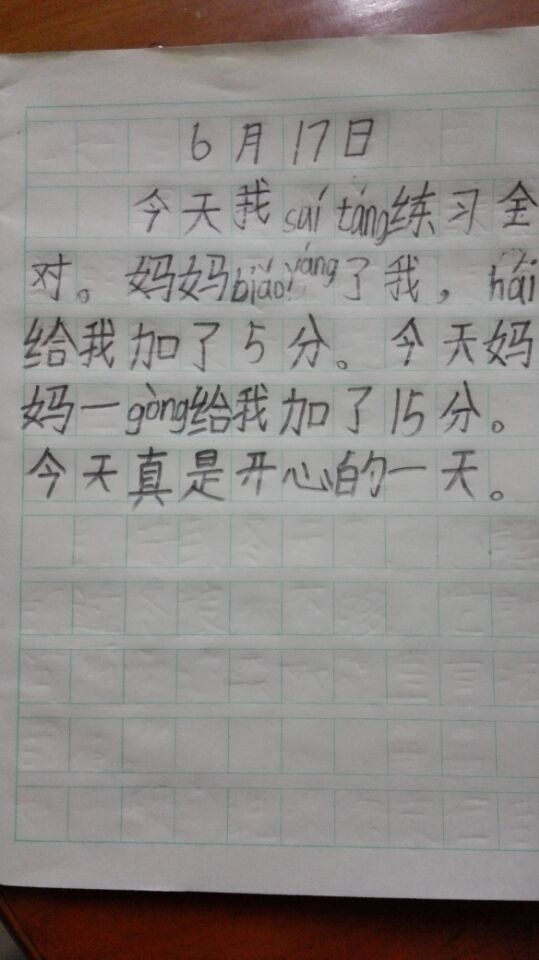 6月17日
今天我suí táng练习全
对。妈妈biáo yáng了我，hái
给我加了5分。今天妈
妈一gòng给我加了15分。
今天真是开心的一天。